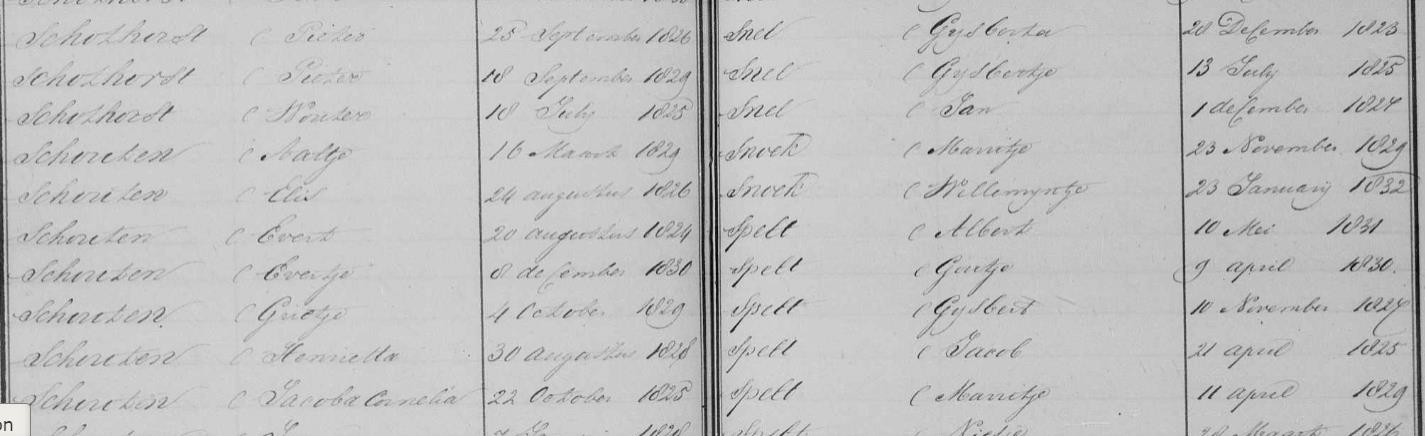 Schothorst ( Pieter 25 September 1826
Schothorst ( Pieter 18 September 1829
Schothorst ( Wouter 18 July 1825
Schouten ( Aaltje 16 Maart 1829
Schouten ( Elis 24 augustus 1826
Schouten ( Evert 20 augustus 1824
Schouten ( Evertje 8 december 1830
Schouten ( Grietje 4 October 1829
Schouten ( Henrietta 30 augustus 1828
Schouten ( Jacoba Cornelia 22 October 1825
Snel ( Gysberta 28 December 1823
Snel ( Gysbertje 13 July 1825
Snel ( Jan 1 december 1827
Snoek ( Marritje 23 November 1829
Snoek ( Willemyntje 23 January 1832
Spelt ( Albert 10 Mei 1831
Spelt ( Geertje 9 april 1830.
Spelt ( Gysbert 10 November 1827
Spelt ( Jacob 21 april 1825
Spelt ( Marritje 11 april 1829
on